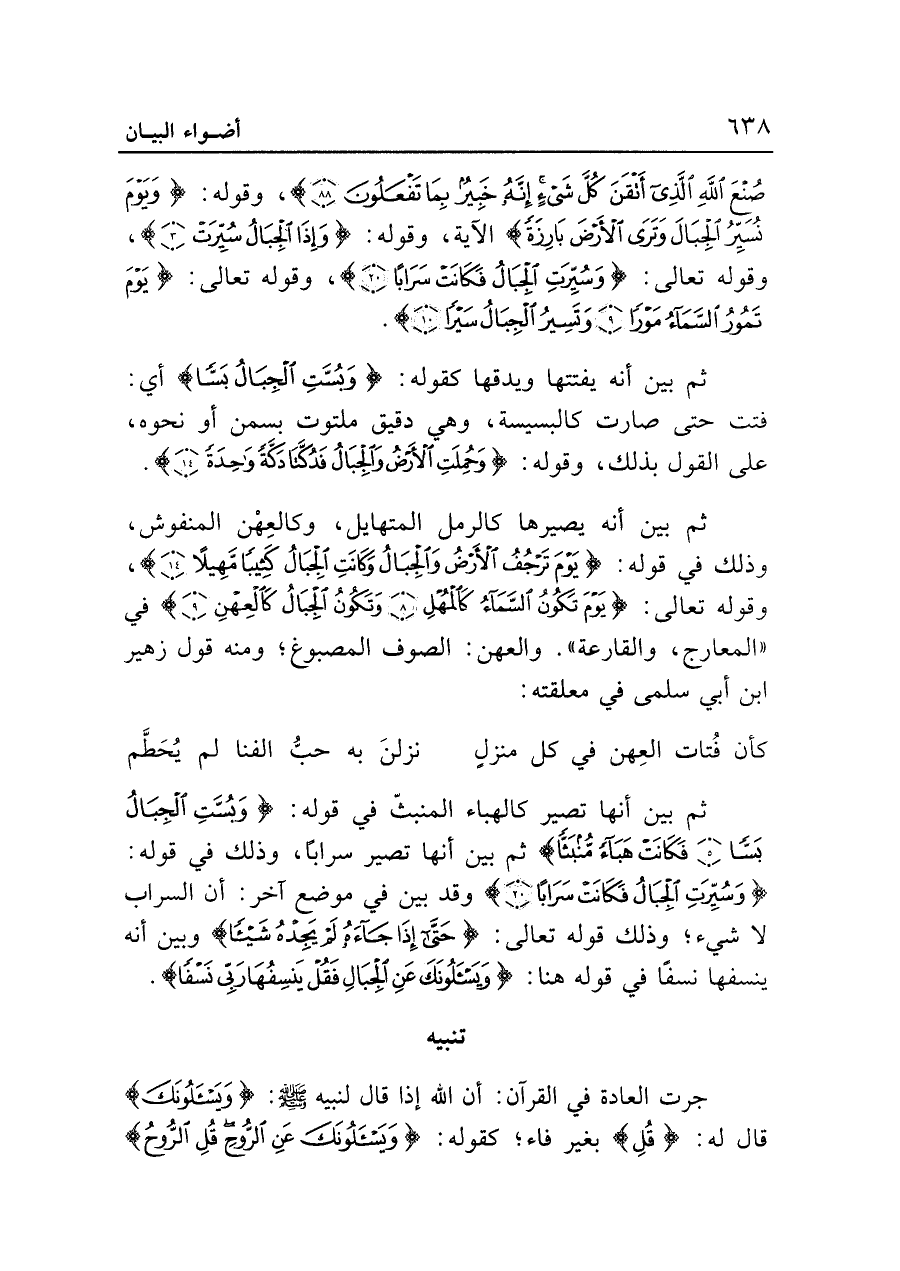 ٦٣٨
أضواء البيان
صُنْعَ اللَّهِ الَّذِي أَتْقَنَ كُلَّ شَيْءٍ إِنَّهُ خَبِيرٌ بِمَا تَفْعَلُونَ ۝٨٨﴾، وقوله: ﴿وَيَوْمَ
نُسَيِّرُ الْجِبَالَ وَتَرَى الْأَرْضَ بَارِزَةً﴾ الآية، وقوله: ﴿وَإِذَا الْجِبَالُ سُيِّرَتْ ۝٣﴾،
وقوله تعالى: ﴿وَسُيِّرَتِ الْجِبَالُ فَكَانَتْ سَرَابًا ۝٢٠﴾، وقوله تعالى: ﴿يَوْمَ
تَمُورُ السَّمَاءُ مَوْرًا ۝٩ وَتَسِيرُ الْجِبَالُ سَيْرًا ۝١٠﴾.
ثم بين أنه يفتتها ويدقها كقوله: ﴿وَبُسَّتِ الْجِبَالُ بَسًّا﴾ أي:
فتت حتى صارت كالبسيسة، وهي دقيق ملتوت بسمن أو نحوه،
على القول بذلك، وقوله: ﴿وَحُمِلَتِ الْأَرْضُ وَالْجِبَالُ فَدُكَّتَا دَكَّةً وَاحِدَةً ۝١٤﴾.
ثم بين أنه يصيرها كالرمل المتهايل، وكالعِهْن المنفوش،
وذلك في قوله: ﴿يَوْمَ تَرْجُفُ الْأَرْضُ وَالْجِبَالُ وَكَانَتِ الْجِبَالُ كَثِيبًا مَهِيلًا ۝١٤﴾،
وقوله تعالى: ﴿يَوْمَ تَكُونُ السَّمَاءُ كَالْمُهْلِ ۝٨ وَتَكُونُ الْجِبَالُ كَالْعِهْنِ ۝٩﴾ في
«المعارج، والقارعة». والعهن: الصوف المصبوغ؛ ومنه قول زهير
ابن أبي سلمى في معلقته:
كأن فُتات العِهن في كل منزلٍ نزلنَ به حبُّ الفنا لم يُحَطَّم
ثم بين أنها تصير كالهباء المنبثّ في قوله: ﴿وَبُسَّتِ الْجِبَالُ
بَسًّا ۝٥ فَكَانَتْ هَبَاءً مُنْبَثًّا﴾ ثم بين أنها تصير سرابًا، وذلك في قوله:
﴿وَسُيِّرَتِ الْجِبَالُ فَكَانَتْ سَرَابًا ۝٢٠﴾ وقد بين في موضع آخر: أن السراب
لا شيء؛ وذلك قوله تعالى: ﴿حَتَّى إِذَا جَاءَهُ لَمْ يَجِدْهُ شَيْئًا﴾ وبين أنه
ينسفها نسفًا في قوله هنا: ﴿وَيَسْأَلُونَكَ عَنِ الْجِبَالِ فَقُلْ يَنْسِفُهَا رَبِّي نَسْفًا﴾.
تنبيه
جرت العادة في القرآن: أن الله إذا قال لنبيه ﷺ: ﴿وَيَسْأَلُونَكَ﴾
قال له: ﴿قُلِ﴾ بغير فاء؛ كقوله: ﴿وَيَسْأَلُونَكَ عَنِ الرُّوحِ قُلِ الرُّوحُ﴾